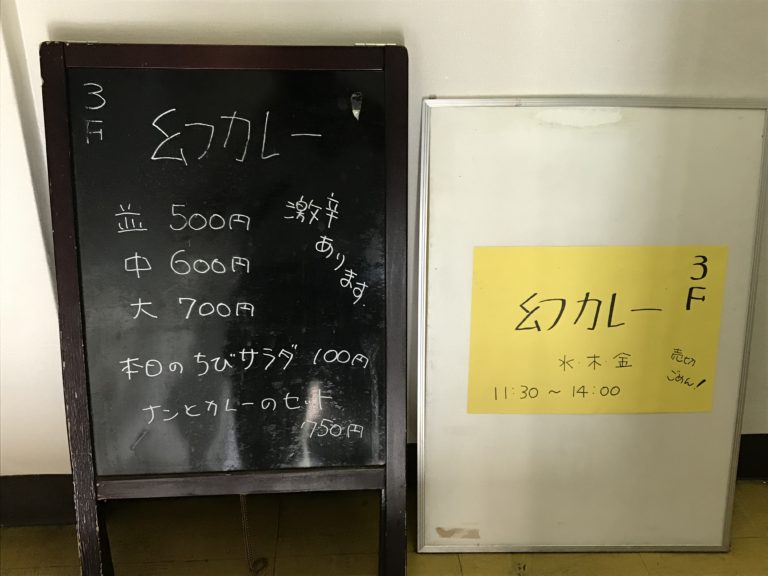 3F
幻カレー
並 500円
中 600円
大 700円
激辛
あります.
本日のちびサラダ 100円
ナンとカレーのセット
750円
3F
幻カレー
水・木・金
11:30 〜 14:00
売切
ごめん!